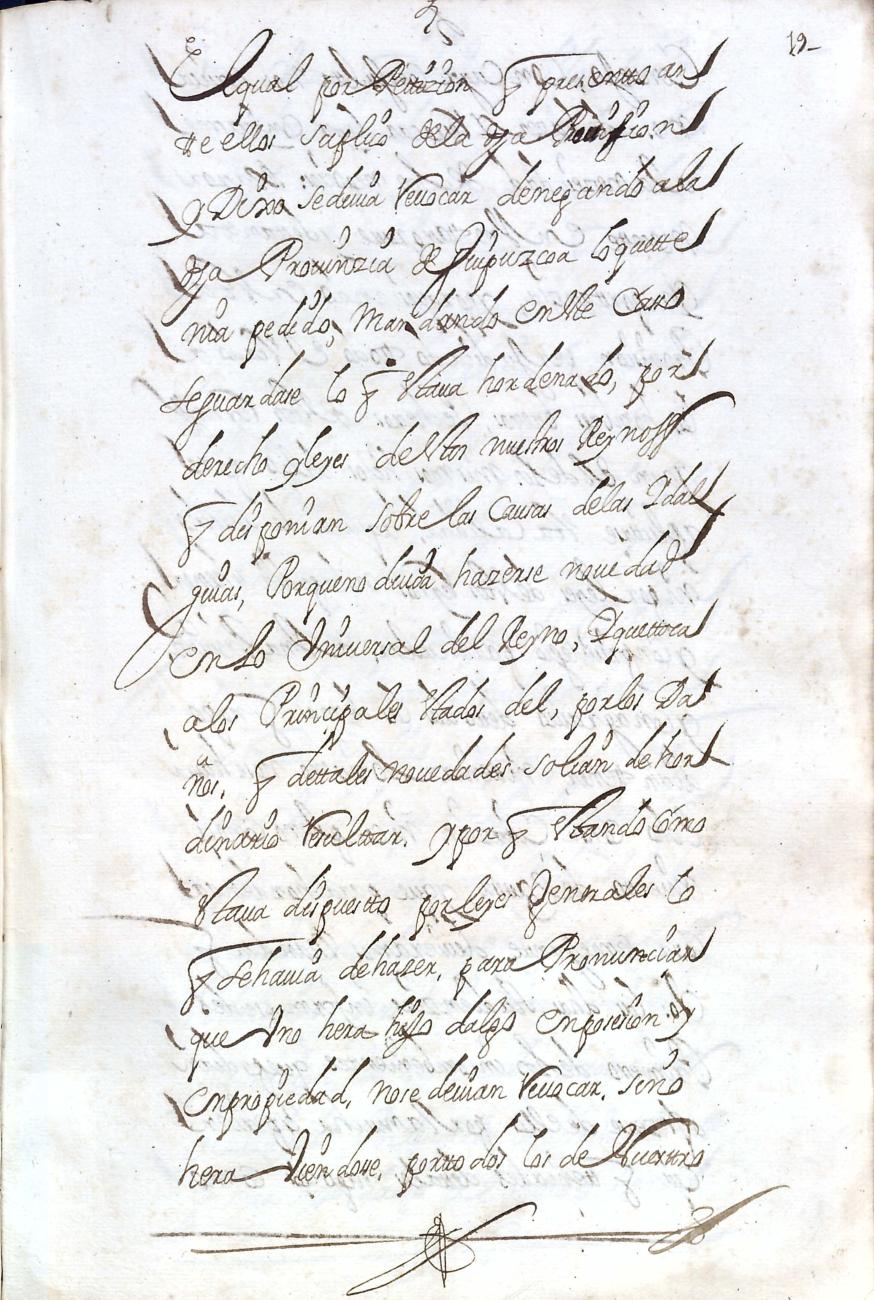 19-
El qual por Petizion q̃ presentto an
tte ellos suplico de la dha Prouision
y Dixo se deuia Reuocar denegando a la
dha Prouinzia de Guipuzcoa lo que tte
nia pedido, Mandando en Este Caso
se guardase lo q̃ Estaua hordenado, por
derecho y leyes destos nuestros Reynos
q̃ disponian sobre las Causas de las Ydal
guias, Porque no deuia hazerse nouedad
en lo Vniuersal del Reyno, Y que ttoca
a los Principales Estados del, por los Da
ños, q̃ de ttales nouedades solian de hor
dinario Resulttar. y por q̃ Estando Como
Estaua dispuestto por leyes Jenerales lo
q̃ se hauia de haser, para Pronunciar
que Vno hera hijo dalgo en posesion y
en propiedad, no se deuian Reuocar. sino
hera Viendose, por ttodos los de Nuesttro